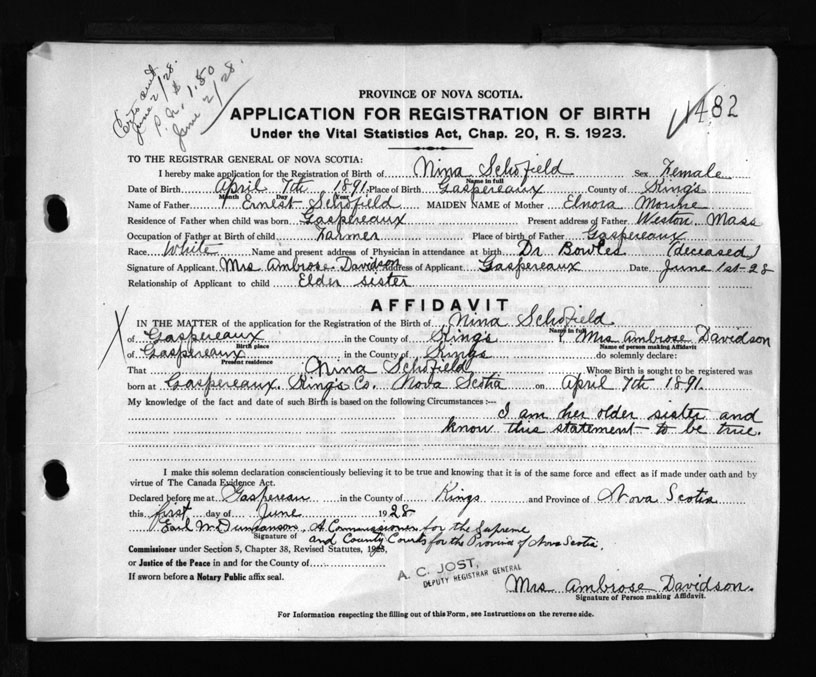 Ext. out
June 2/28.
P.N. 1.50
June 2/28.
1482
PROVINCE OF NOVA SCOTIA.
APPLICATION FOR REGISTRATION OF BIRTH
Under the Vital Statistics Act, Chap. 20, R. S. 1923.
TO THE REGISTRAR GENERAL OF NOVA SCOTIA:
I hereby make application for the Registration of Birth of Nina Schofield Sex Female
Name in full
Date of Birth April 7th 1891 Place of Birth Gaspereaux County of King's
Month Day Year
Name of Father Ernest Schofield MAIDEN NAME of Mother Elnora
Residence of Father when child was born Gaspereaux Present address of Father Weston Mass
Occupation of Father at Birth of child Farmer Place of birth of Father Gaspereaux
Race White Name and present address of Physician in attendance at birth Dr Bowles (deceased)
Signature of Applicant Mrs Ambrose Davidson Address of Applicant Gaspereaux Date June 1st-28
Relationship of Applicant to child Elder sister
AFFIDAVIT
IN THE MATTER of the application for the Registration of the Birth of Nina Schofield
Name in full
of Gaspereaux in the County of King's I, Mrs Ambrose Davidson
Birth place Name of person making Affidavit
of Gaspereaux in the County of Kings do solemnly declare:
Present residence
That Nina Schofield Whose Birth is sought to be registered was
born at Gaspereaux King's Co. Nova Scotia on April 7th 1891.
My knowledge of the fact and date of such Birth is based on the following Circumstances :—
I am her older sister and
know this statement to be true.
I make this solemn declaration conscientiously believing it to be true and knowing that it is of the same force and effect as if made under oath and by
virtue of The Canada Evidence Act.
Declared before me at Gaspereau in the County of Kings and Province of Nova Scotia
this first day of June 1928
Earl M. A Commissioner for the Supreme
Signature of
and County Courts for the Province of Nova Scotia.
Commissioner under Section 5, Chapter 38, Revised Statutes, 1923,
or Justice of the Peace in and for the County of
If sworn before a Notary Public affix seal.
A. C. JOST,
DEPUTY REGISTRAR GENERAL
Mrs Ambrose Davidson.
Signature of Person making Affidavit.
For Information respecting the filling out of this Form, see Instructions on the reverse side.